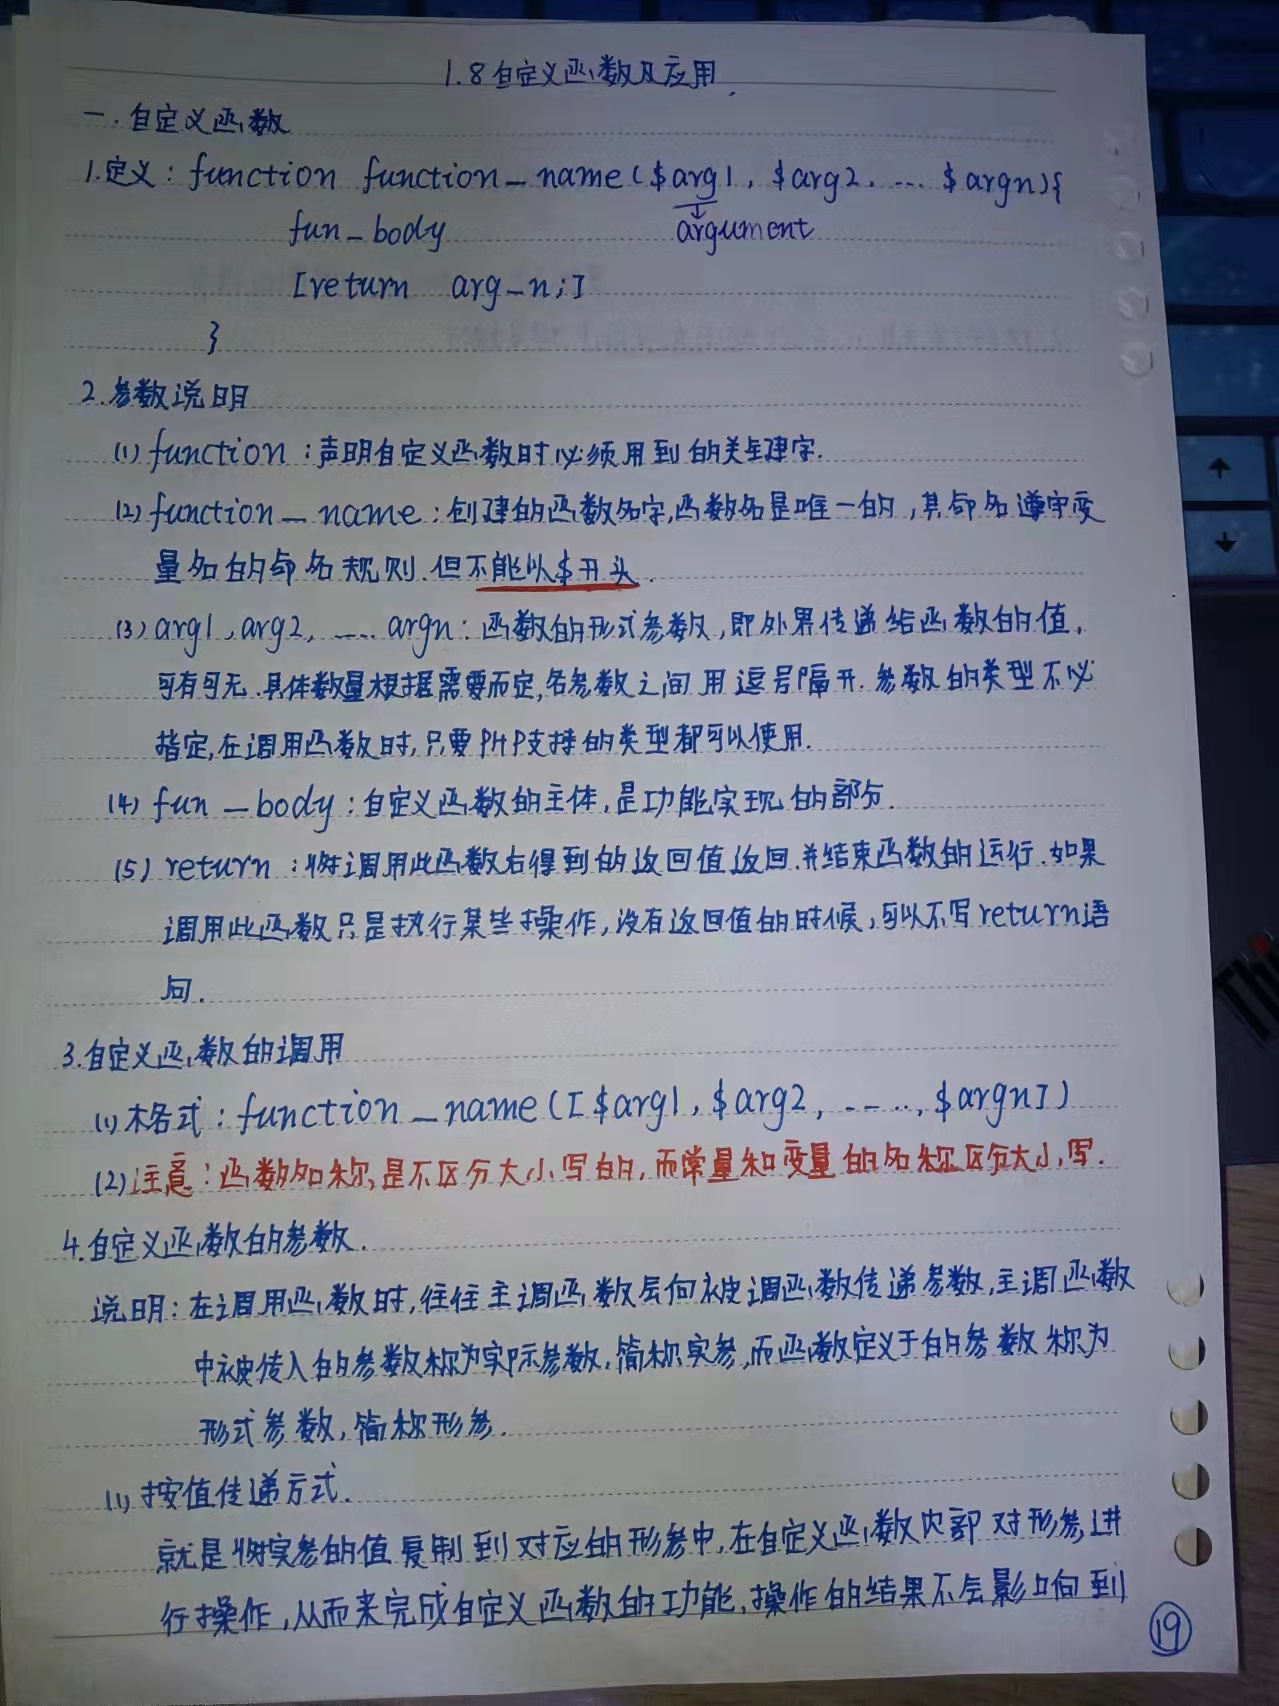 1.8自定义函数及应用
一.自定义函数
1.定义：function function_name($arg1, $arg2, ... $argn){
fun_body argument
[return arg_n;]
}
2.参数说明
(1) function：声明自定义函数时必须用到的关键字.
(2) function_name：创建的函数名字,函数名是唯一的,其命名遵守变
量名的命名规则.但不能以$开头.
(3) arg1, arg2, .... argn：函数的形式参数,即外界传递给函数的值,
可有可无.具体数量根据需要而定,各参数之间用逗号隔开.参数的类型不必
指定,在调用函数时,只要PHP支持的类型都可以使用.
(4) fun_body：自定义函数的主体,是功能实现的部分.
(5) return：将调用此函数后得到的返回值返回.并结束函数的运行.如果
调用此函数只是执行某些操作,没有返回值的时候,可以不写return语
句.
3.自定义函数的调用
(1)格式：function_name([$arg1, $arg2, ...., $argn])
(2)注意：函数名称,是不区分大小写的,而常量和变量的名称区分大小写.
4.自定义函数的参数.
说明：在调用函数时,往往主调函数会向被调函数传递参数,主调函数
中被传入的参数称为实际参数,简称实参,而函数定义于的参数称为
形式参数,简称形参.
(1)按值传递方式.
就是将实参的值复制到对应的形参中,在自定义函数内部对形参进
行操作,从而来完成自定义函数的功能,操作的结果不会影响到
19